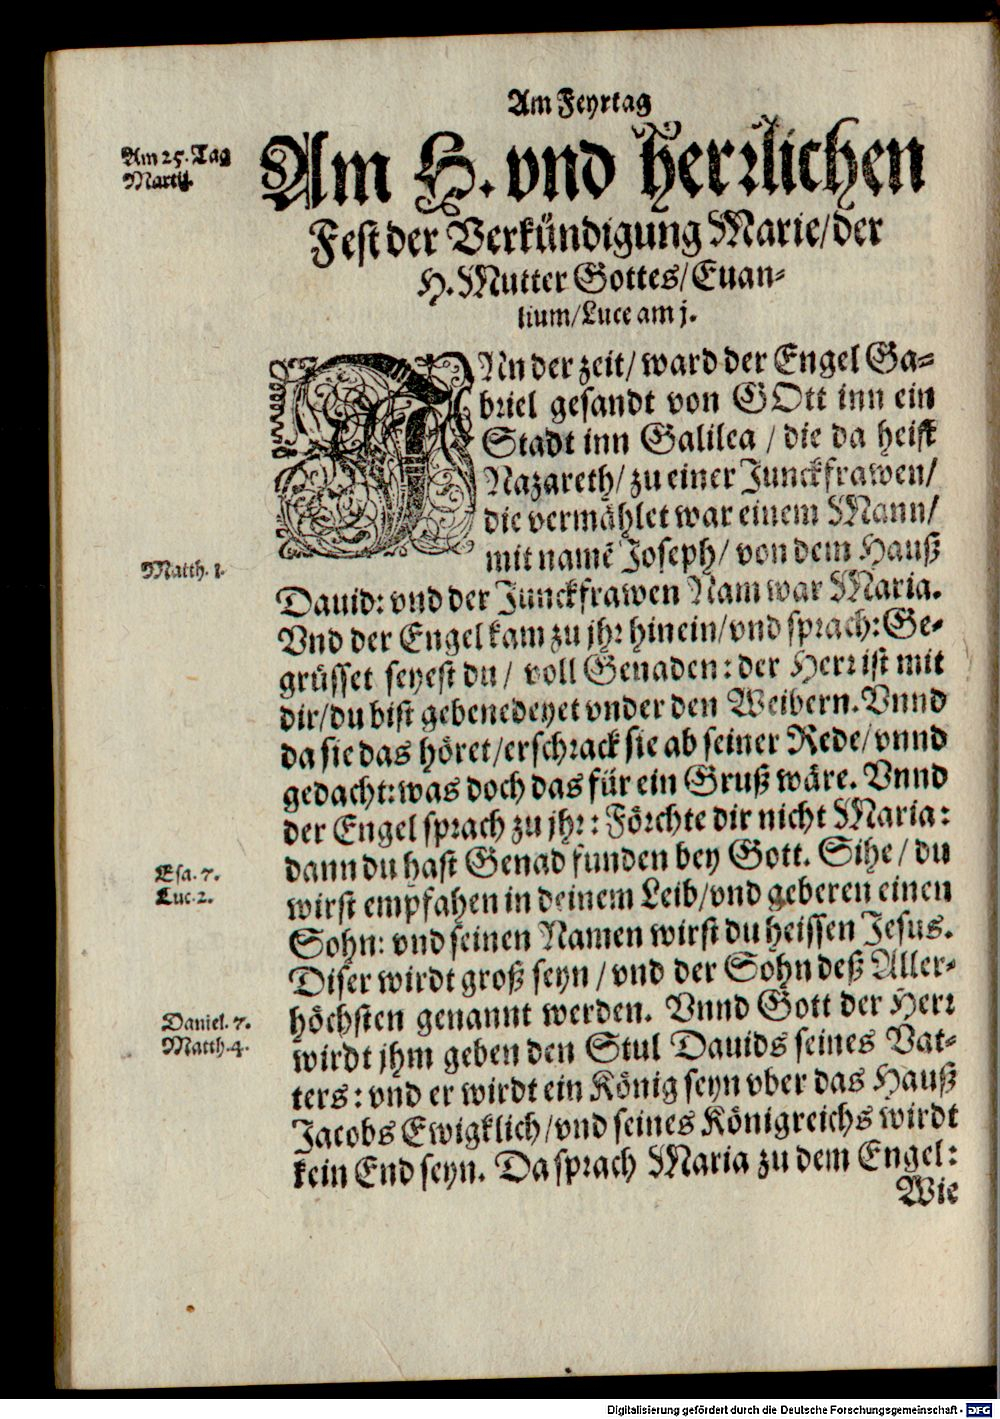 Am Feyrtag
Am 25. Tag
Martij.
Am H. vnd Herrlichen
Fest der Verkündigung Marie/der
H. Mutter Gottes/Euan-
lium/Luce am j.
AN der zeit/ ward der Engel Ga-
briel gesandt von GOtt inn ein
Stadt inn Galilea / die da heist
Nazareth/ zu einer Junckfrawen/
die vermählet war einem Mann/
mit namẽ Joseph/ von dem Hauß
Matth. 1.
Dauid: vnd der Junckfrawen Nam war Maria.
Vnd der Engel kam zu jhr hinein/vnd sprach: Ge-
grüsset seyest du/ voll Genaden: der Herr ist mit
dir/du bist gebenedeyet vnder den Weibern. Vnnd
da sie das höret/erschrack sie ab seiner Rede/vnnd
gedacht: was doch das für ein Gruß wäre. Vnnd
der Engel sprach zu jhr: Förchte dir nicht Maria:
dann du hast Genad funden bey Gott. Sihe/ du
Esa. 7.
Luc. 2.
wirst empfahen in deinem Leib/vnd geberen einen
Sohn: vnd seinen Namen wirst du heissen Jesus.
Diser wirdt groß seyn/vnd der Sohn deß Aller-
höchsten genannt werden. Vnnd Gott der Herr
Daniel. 7.
Matth. 4.
wirdt jhm geben den Stul Dauids seines Vat-
ters: vnd er wirdt ein König seyn vber das Hauß
Jacobs Ewigklich/vnd seines Königreichs wirdt
kein End seyn. Da sprach Maria zu dem Engel:
Wie
Digitalisierung gefördert durch die Deutsche Forschungsgemeinschaft - DFG